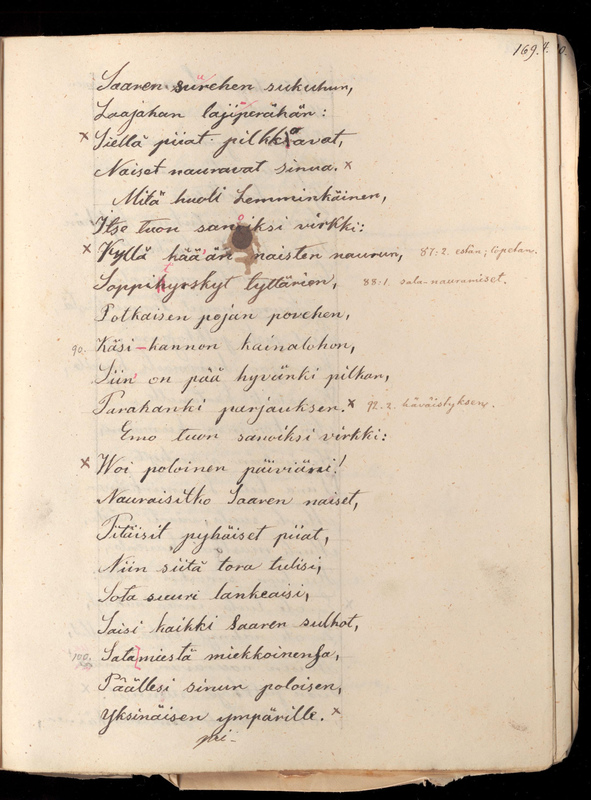 169.
Saaren suurehen sukuhun,
Laajahan lajiperähän:
× Siellä piiat pilkkoavat,
Naiset nauravat sinua. ×
Mitä huoli Lemminkäinen,
Itse tuon sanoiksi virkki:
× Kyllä hää'än naisten naurun, 87:2. estän; lopetan.
Soppihyrskyt tyttärien, 88:1. sala-nauramiset.
Potkaisen pojan povehen,
90. Käsi-kannon kainalohon,
Siin' on pää hyvänki pilkan,
Parahanki parjauksen. × 92:2. häväistyksen.
Emo tuon sanoiksi virkki:
× Woi poloinen päiviäni!
Nauraisitko Saaren naiset,
Pitäisit pyhäiset piiat,
Niin siitä tora tulisi,
Sota suuri lankeaisi,
Saisi kaikki Saaren sulhot,
100. Sata miestä miekkoinensa,
Päällesi sinun poloisen,
Yksinäisen ympärille. ×